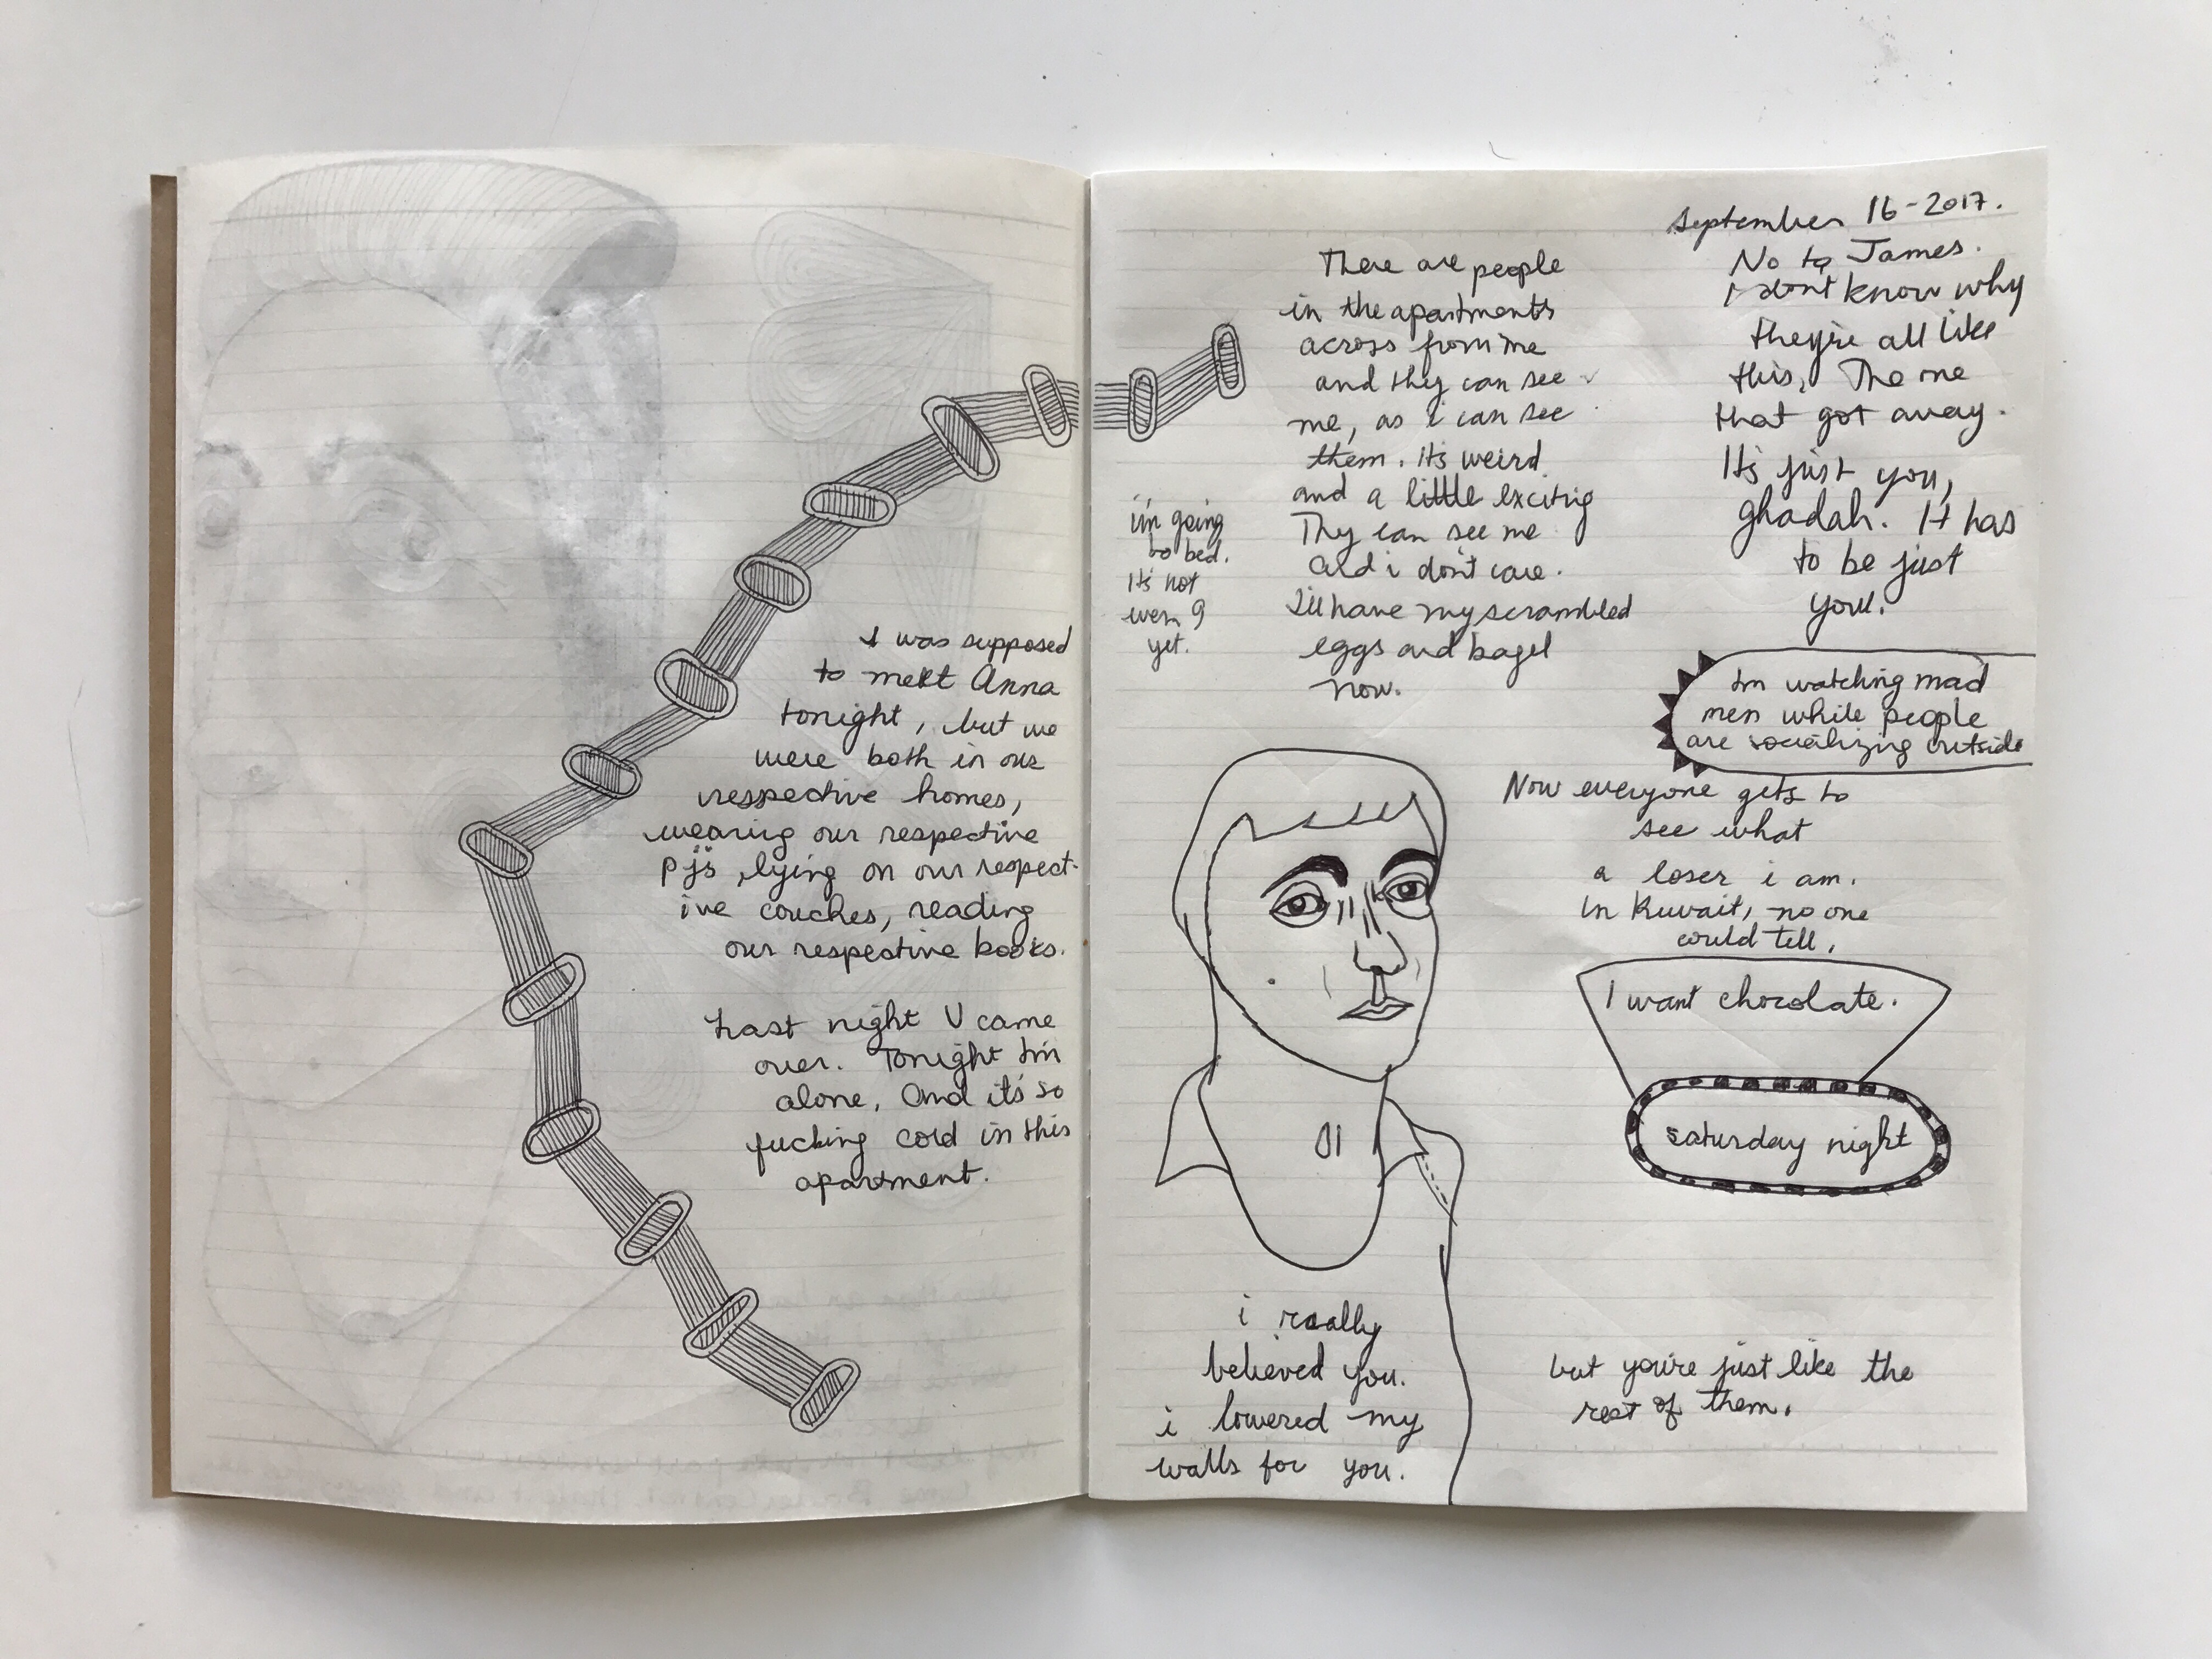 I was supposed
to meet Anna
tonight, but we
were both in our
respective homes,
wearing our respective
pjs, lying on our respect-
ive couches, reading
our respective books.
Last night V came
over. Tonight I'm
alone. And it's so
fucking cold in this
apartment.
There are people
in the apartments
across from me
and they can see
me, as i can see
them. Its weird
and a little exciting
They can see me
and i don't care.
I'll have my scrambled
eggs and bagel
now.
i'm going
to bed.
It's not
even 9
yet.
September 16-2017.
No to James.
i don't know why
they're all like
this. The one
that got away.
It's just you,
ghadah. It has
to be just
you.
I'm watching mad
men while people
are socializing outside
Now everyone gets to
see what
a loser i am.
In Kuwait, no one
could tell.
I want chocolate.
saturday night
i really
believed you.
i lowered my
walls for you.
but you're just like the
rest of them.